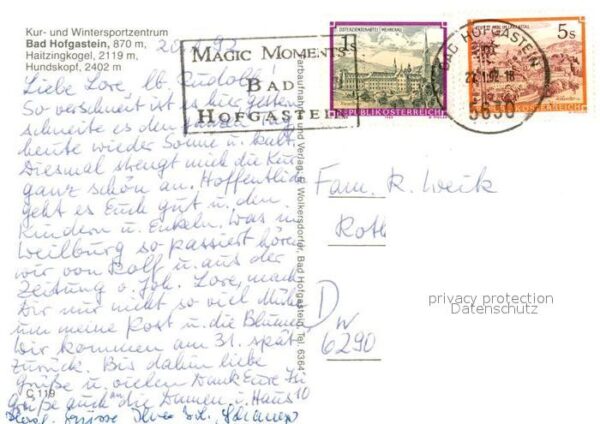 Kur- und Wintersportzentrum
Bad Hofgastein, 870 m,
Haitzingkogel, 2119 m,
Hundskopf, 2402 m
MAGIC MOMENTS
BAD
HOFGASTEIN
1s
REPUBLIK ÖSTERREICH
5s
REPUBLIK ÖSTERREICH
BAD HOFGASTEIN
5630
Liebe Lore, lb. Rudolf!
So verschneit ist es hier, gestern
schneite es den
heute wieder Sonne u. kalt.
Diesmal strengt mich die Kur
ganz schön an. Hoffentlich
geht es Euch gut u. den
Kindern u. Enkeln. Was in
Weilburg so passiert hören
wir von Rolf u. aus der
Zeitung v. Joh. Lore, mach
Dir nur nicht so viel Mühe
um meine Post u. die Blumen
Wir kommen am 31. spät
zurück. Bis dahin liebe
Grüße u. vielen Dank Eure
Grüße auch an die Damen u. Haus 10
Grüsse
Verlag R. Wolkersdorfer, Bad Hofgastein, Tel. 6364
Fam. R. Weik
Roth
D
6290
privacy protection
Datenschutz
C 119